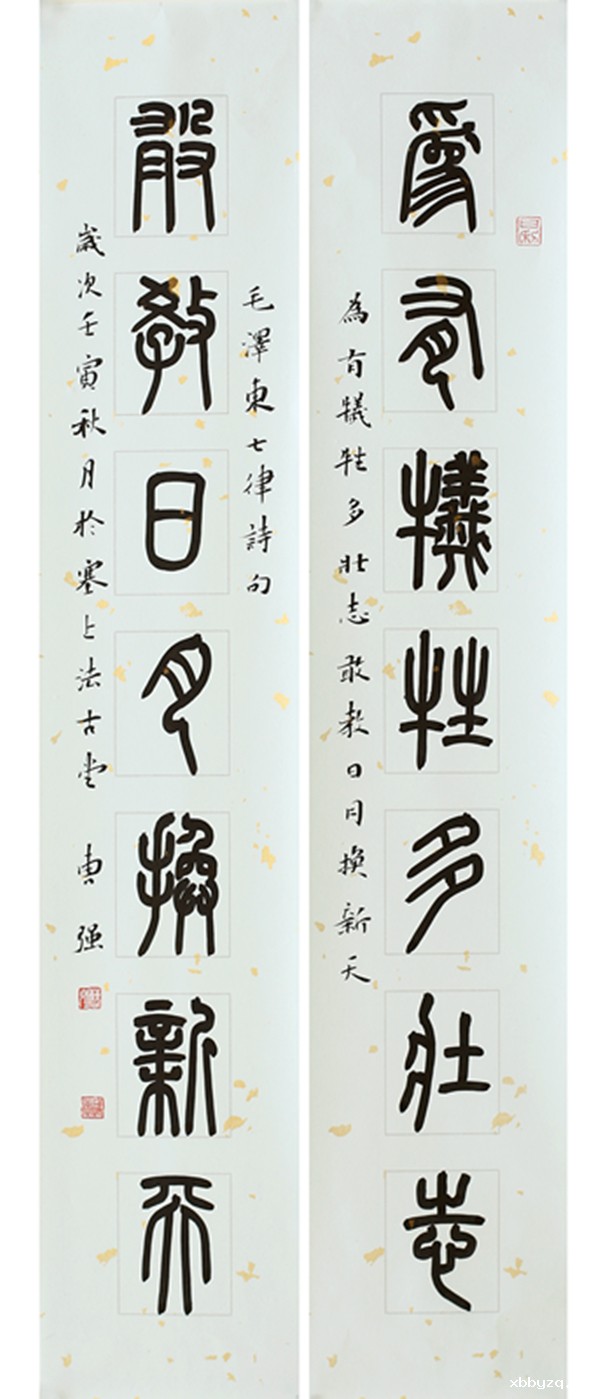 為有犧牲多壯志
為有犧牲多壯志敢教日月換新天
毛澤東七律詩句
敢教日月換新天
歲次壬寅秋月於塞上法古堂 曹强
xbbyzq